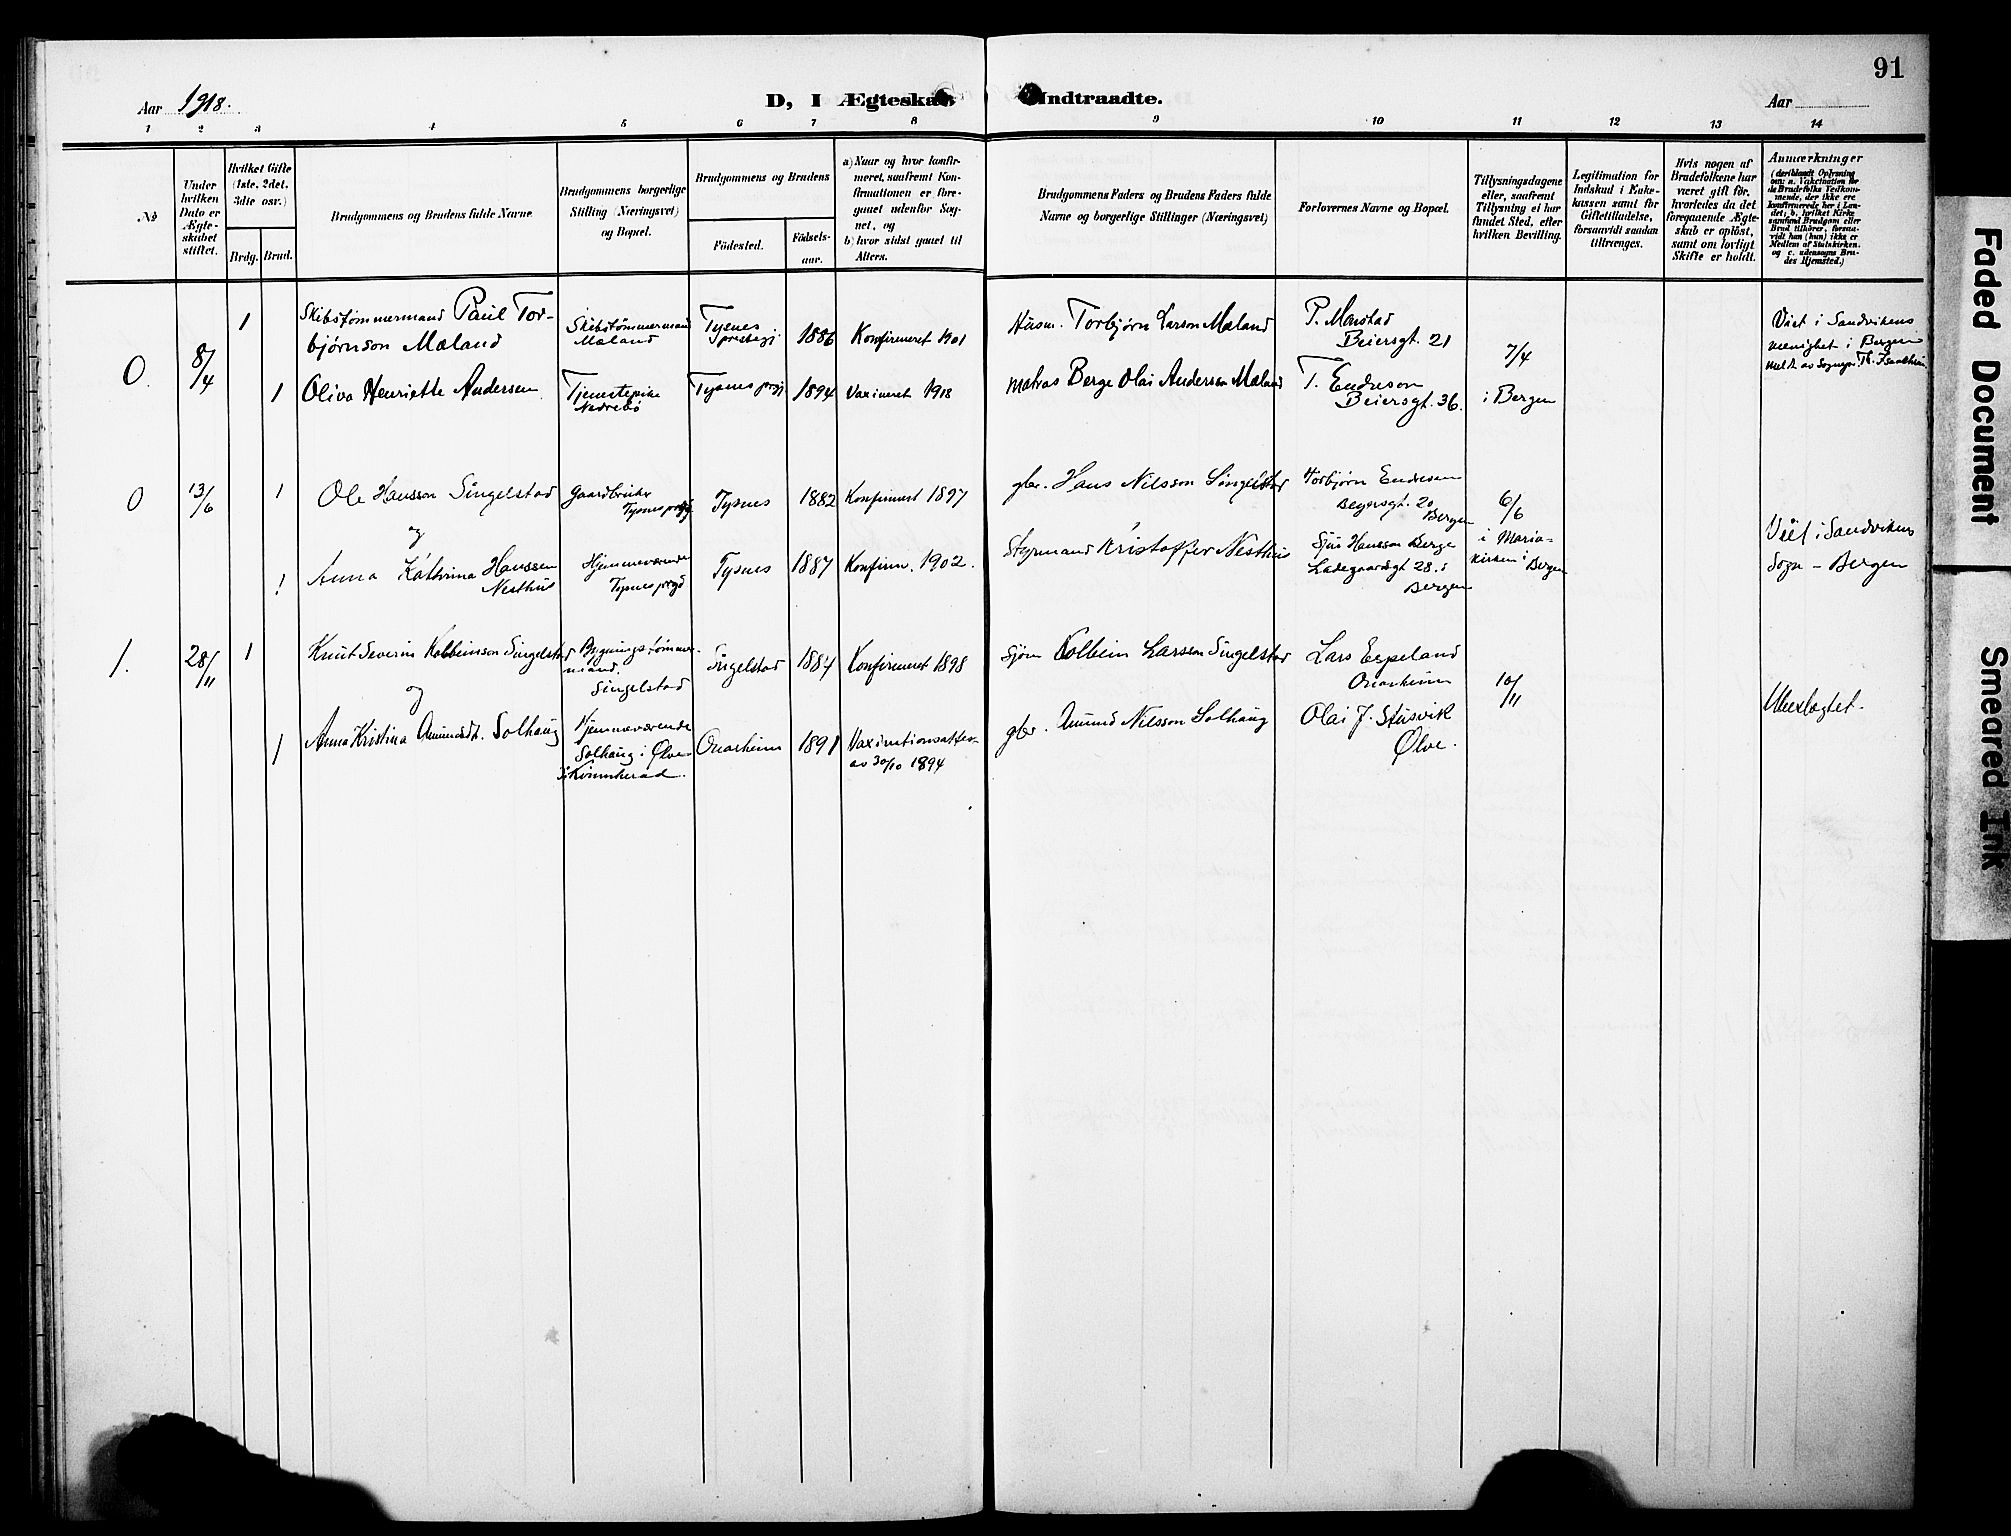 91
Aar 1918.
D, I Ægteskab Indtraadte.
Aar
1 2 3 4 5 6 7 8 9 10 11 12 13 14
№
Under
hvilken
Dato er
Ægte-
skabet
stiftet.
Hvilket Gifte
(1ste, 2det,
3die osv.)
Brdg. Brud.
Brudgommens og Brudens fulde Navne
Brudgommens borgerlige
Stilling (Næringsvei)
og Bopæl.
Brudgommens og Brudens
Födested.
Födsels-
aar.
a) Naar og hvor konfir-
meret, saafremt Kon-
firmationen er fore-
gaaet udenfor Sog-
net, og
b) hvor sidst gaaet til
Alters.
Brudgommens Faders og Brudens Faders fulde
Navne og borgerlige Stillinger (Næringsvei)
Forlovernes Navne og Bopæl.
Tillysningsdagene
eller, saafremt
Tillysning ei har
fundet Sted, efter
hvilken Bevilling.
Legitimation for
Indskud i Enke-
kassen samt for
Giftetilladelse,
forsaavidt saadan
tiltrænges.
Hvis nogen af
Brudefolkene har
været gift för,
hvorledes da det
foregaaende Ægte-
skab er oplöst,
samt om lovligt
Skifte er holdt.
Anmærkninger
(deriblandt Oplysning
om: a. Vakcination for
de Brudefolks Vedkom-
mende, der ikke ere
konfirmerede her i Lan-
det; b. hvilket Kirke
samfund Brudgom eller
Brud tilhörer, forsaa-
vidt han (hun) ikke er
Medlem af Statskirken,
og c. udensogns Bru-
des Hjemsted.)
0. 8/4 1
Skibstømmermand Paul Tor-
bjørnson Mæland
Skibstømmermand
Mæland
Tysnes
1886
Konfirmeret 1901
Husm. Torbjørn Larson Mæland
P. Monstad
Beiersgt. 21
7/4
i Bergen
Viet i Sandvikens
menighet i Bergen
1 Oliva Henriette Andersen
Tjenestepike
Nedrebø
Tysnes prgj
1894
Vaxineret 1918
matros Berge Olai Andersen Mæland
T. Endreson
Beiersgt. 36.
0 13/6 1
Ole Hansson Singelstad
Gaardbruker
Tysnes prgj
Tysnes
1882
Konfirmert 1897
gbr. Hans Nilsson Singelstad
Torbjørn Endresen
Beyersgt. 20
Bergen
6/6
i Maria-
kirken i Bergen
Viet i Sandvikens
Sogn - Bergen
og
1 Anna Kathrina Hanssen
Nesthus
Hjemmeværende
Tysnes prgd
Tysnes
1887
Konfirm. 1902.
Styrmand Kristoffer Nesthus
Sjur Hansson Berge
Ladegaardsgt 28. i
Bergen
1. 28/11 1
Knut Severin Kolbeinson Singelstad
Bygningstømmer-
mand.
Singelstad
Singelstad
1884
Konfirmeret 1898
Sjøm Kolbein Larsson Singelstad
Lars Espeland
Onarheim
10/11
Ubeslægtet.
og
1 Anna Kristina Amundsdt. Solhaug
Hjemmeværende
Solhaug i Ølve
i Kvinnherad.
Onarheim
1891
Vaxinationsattest
av 30/10 1894
gbr. Amund Nilsson Solhaug
Olai J. Stusvik
Ølve.
Faded Document
Smeared Ink